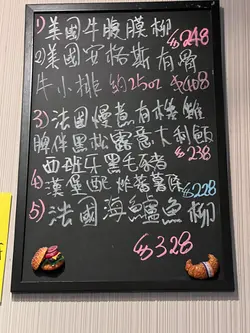 1) 美國牛腹膜柳 $248
2) 美國安格斯有骨
牛小排 約250z $408
3) 法國慢煮有機雞
脾伴黑松露意大利飯
$238
西班牙黑毛豬
4) 漢堡配炸薯條 $228
5) 法國海鱸魚柳
$328